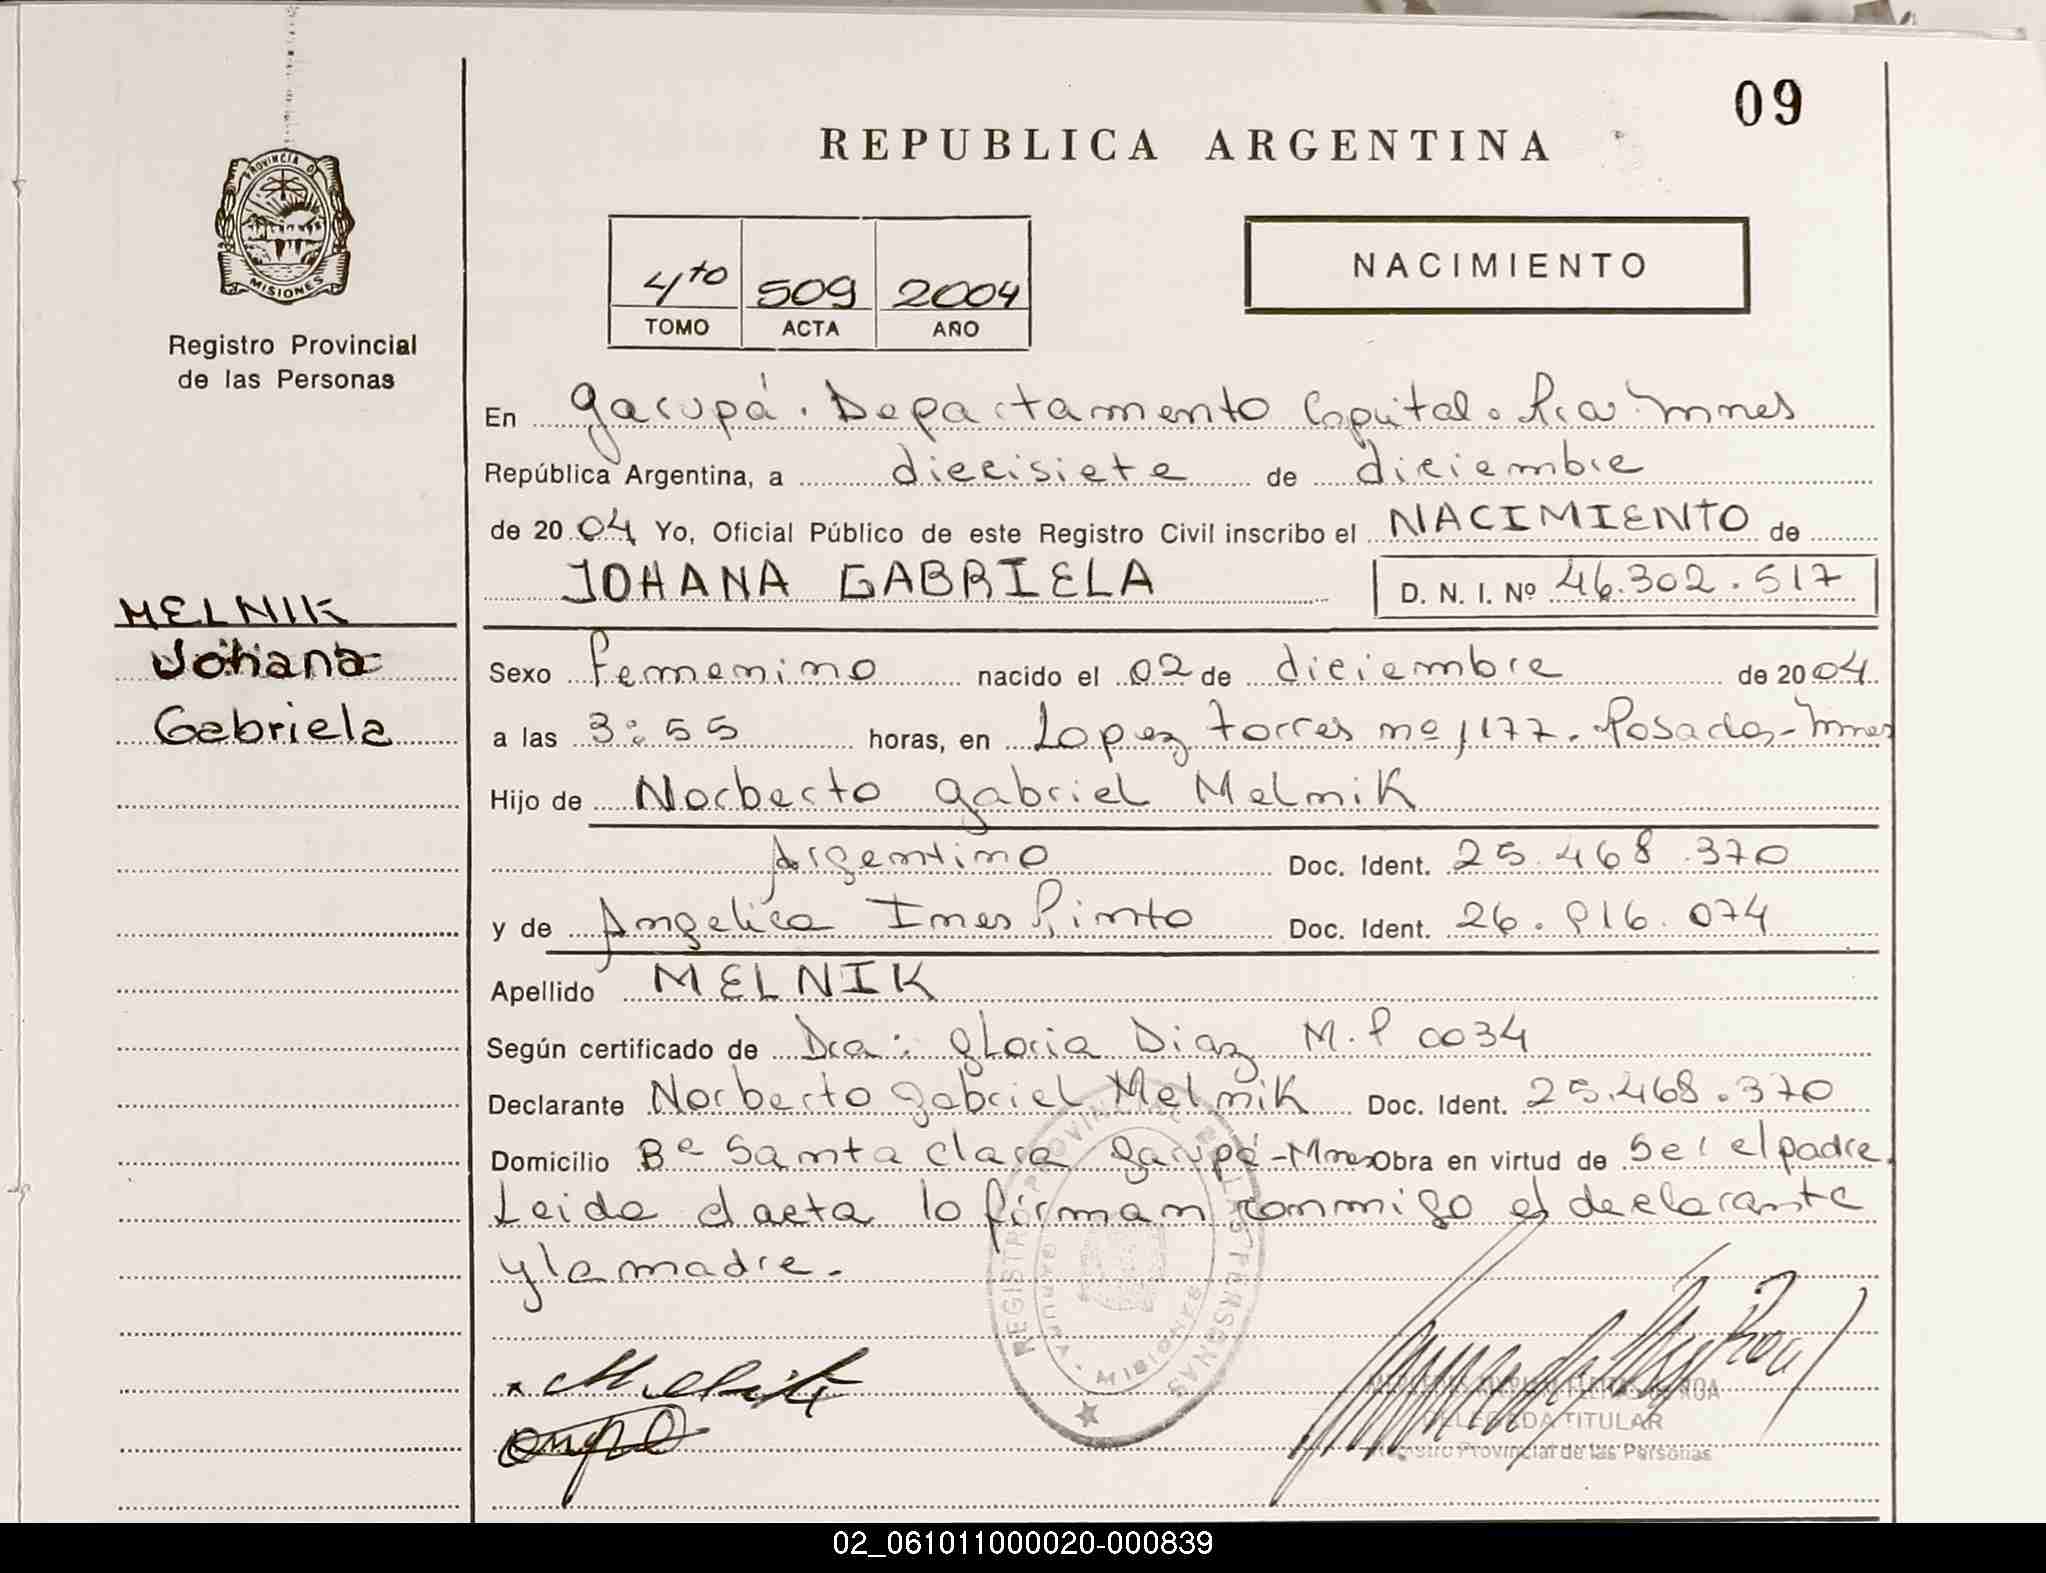 09
REPUBLICA ARGENTINA
PROVINCIA D
MISIONES
Registro Provincial
de las Personas
4to 509 2004
TOMO ACTA AÑO
NACIMIENTO
En Garupá. Departamento Capital. Pcia. Mnes
República Argentina, a diecisiete de diciembre
de 2004 Yo, Oficial Público de este Registro Civil inscribo el NACIMIENTO de
JOHANA GABRIELA D. N. I. Nº 46.302.517
MELNIK
Johana
Gabriela
Sexo Femenino nacido el 02 de diciembre de 2004
a las 3:55 horas, en Lopez Torres nº 1177. Posadas-Mnes
Hijo de Norberto Gabriel Melnik
Argentino Doc. Ident. 25.468.370
y de Angelica Ines Pinto Doc. Ident. 26.816.074
Apellido MELNIK
Según certificado de Dra: Gloria Diaz M.P 0034
Declarante Norberto Gabriel Melnik Doc. Ident. 25.468.370
Domicilio Bº Santa Clara Garupá-Mnes Obra en virtud de ser el padre.
Leida el acta lo firman conmigo el declarante
y la madre.
REGISTRO PROVINCIAL DE LAS PERSONAS
GARUPA MISIONES
DELEGADA TITULAR
Registro Provincial de las Personas
02_061011000020-000839